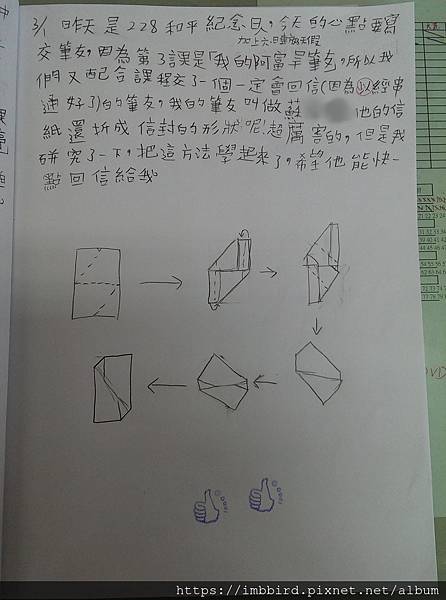 3/1 昨天是228和平紀念日,今天的心點要寫
加上六、日連放三天假
交筆友,因為第3課是「我的阿富汗筆友」,所以我
們又配合課程交了一個一定會回信(因為以經串
通好了)的筆友,我的筆友叫做蘇 他的信
紙還折成信封的形狀呢!超厲害的,但是我
研究了一下,把這方法學起來了,希望他能快一
點回信給我
https://imbbird.pixnet.net/album